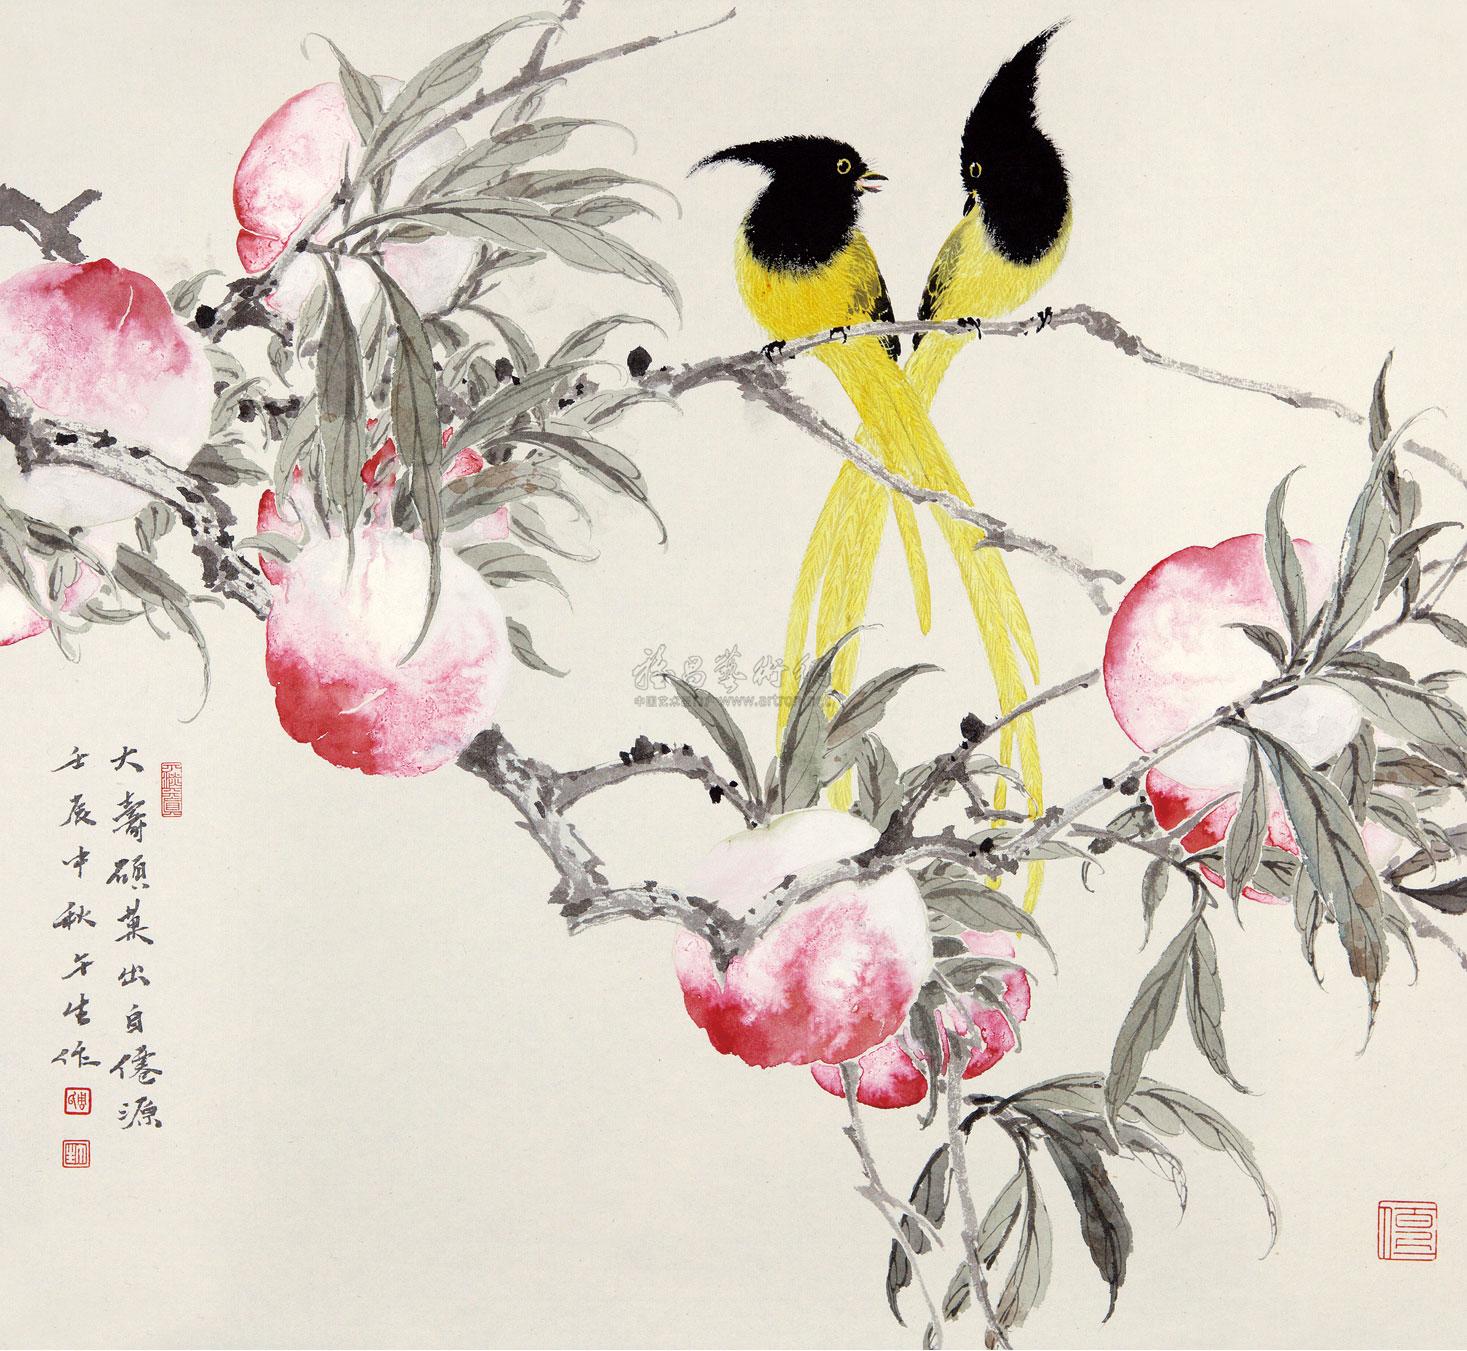 大壽碩菓出自僊源
壬辰中秋午生作
雅昌藝術網
中国艺术品门户-www.artron.net